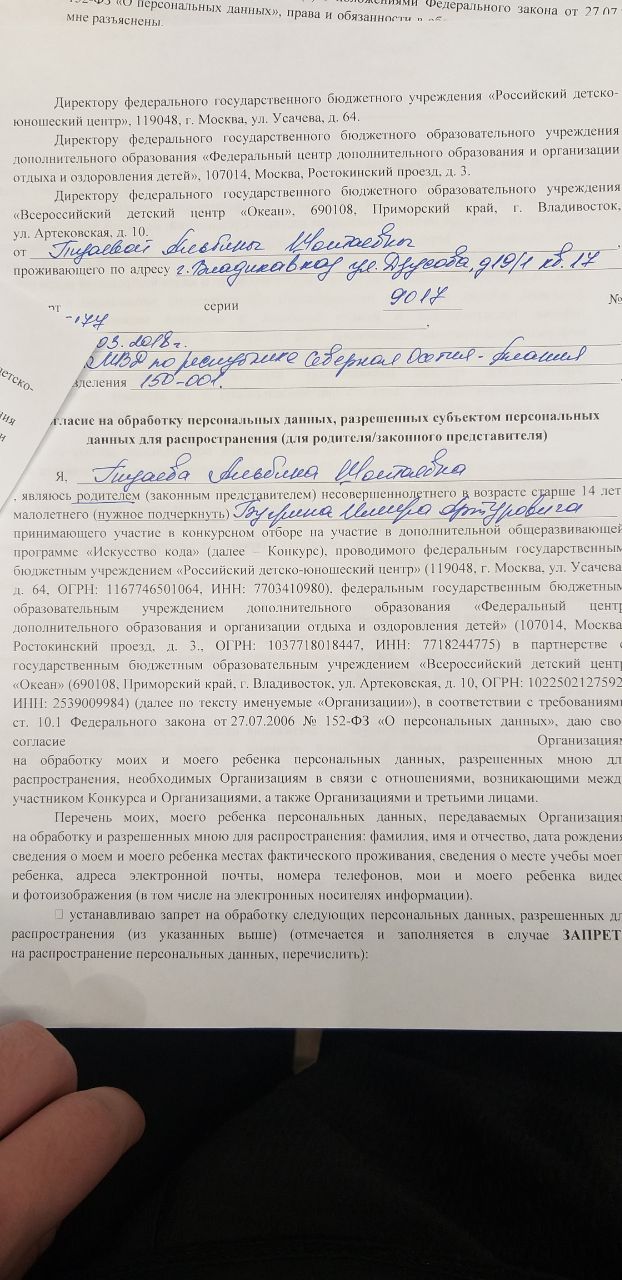 152-ФЗ «О персональных данных», права и обязанности в
Федерального закона от 27.07.
мне разъяснены.
Директору федерального государственного бюджетного учреждения «Российский детско-
юношеский центр», 119048, г. Москва, ул. Усачева, д. 64.
Директору федерального государственного бюджетного образовательного учреждения
дополнительного образования «Федеральный центр дополнительного образования и организации
отдыха и оздоровления детей», 107014, Москва, Ростокинский проезд, д. 3.
Директору федерального государственного бюджетного образовательного учреждения
«Всероссийский детский центр «Океан», 690108, Приморский край, г. Владивосток,
ул. Артековская, д. 10.
от Альбины
проживающего по адресу г. Владикавказ ул. д 19/1 кв. 17
серии 9017 №
03.2018 г.
МВД по республике Северная Осетия - Алания
150-001.
детско-
согласие на обработку персональных данных, разрешенных субъектом персональных
данных для распространения (для родителя/законного представителя)
Я, Альбина
, являюсь родителем (законным представителем) несовершеннолетнего в возрасте старше 14 лет
малолетнего (нужное подчеркнуть) Артуровича
принимающего участие в конкурсном отборе на участие в дополнительной общеразвивающей
программе «Искусство кода» (далее – Конкурс), проводимого федеральным государственным
бюджетным учреждением «Российский детско-юношеский центр» (119048, г. Москва, ул. Усачева
д. 64, ОГРН: 1167746501064, ИНН: 7703410980), федеральным государственным бюджетным
образовательным учреждением дополнительного образования «Федеральный центр
дополнительного образования и организации отдыха и оздоровления детей» (107014, Москва
Ростокинский проезд, д. 3., ОГРН: 1037718018447, ИНН: 7718244775) в партнерстве с
государственным бюджетным образовательным учреждением «Всероссийский детский центр
«Океан» (690108, Приморский край, г. Владивосток, ул. Артековская, д. 10, ОГРН: 1022502127592
ИНН: 2539009984) (далее по тексту именуемые «Организации»), в соответствии с требованиями
ст. 10.1 Федерального закона от 27.07.2006 № 152-ФЗ «О персональных данных», даю сво
согласие Организациям
на обработку моих и моего ребенка персональных данных, разрешенных мною дл
распространения, необходимых Организациям в связи с отношениями, возникающими межд
участником Конкурса и Организациями, а также Организациями и третьими лицами.
Перечень моих, моего ребенка персональных данных, передаваемых Организация
на обработку и разрешенных мною для распространения: фамилия, имя и отчество, дата рождения
сведения о моем и моего ребенка местах фактического проживания, сведения о месте учебы моег
ребенка, адреса электронной почты, номера телефонов, мои и моего ребенка видео
и фотоизображения (в том числе на электронных носителях информации).
устанавливаю запрет на обработку следующих персональных данных, разрешенных дл
распространения (из указанных выше) (отмечается и заполняется в случае ЗАПРЕТ
на распространение персональных данных, перечислить):